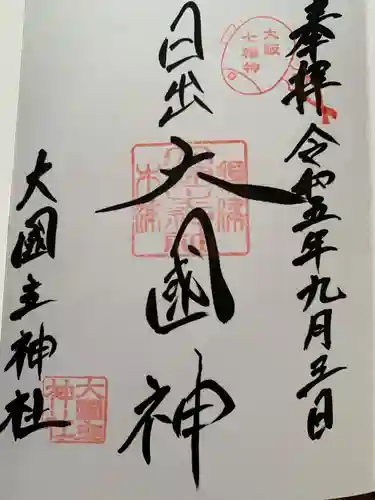 奉拝
令和五年九月五日
大阪
七福神
日出
大國神
大国主神社